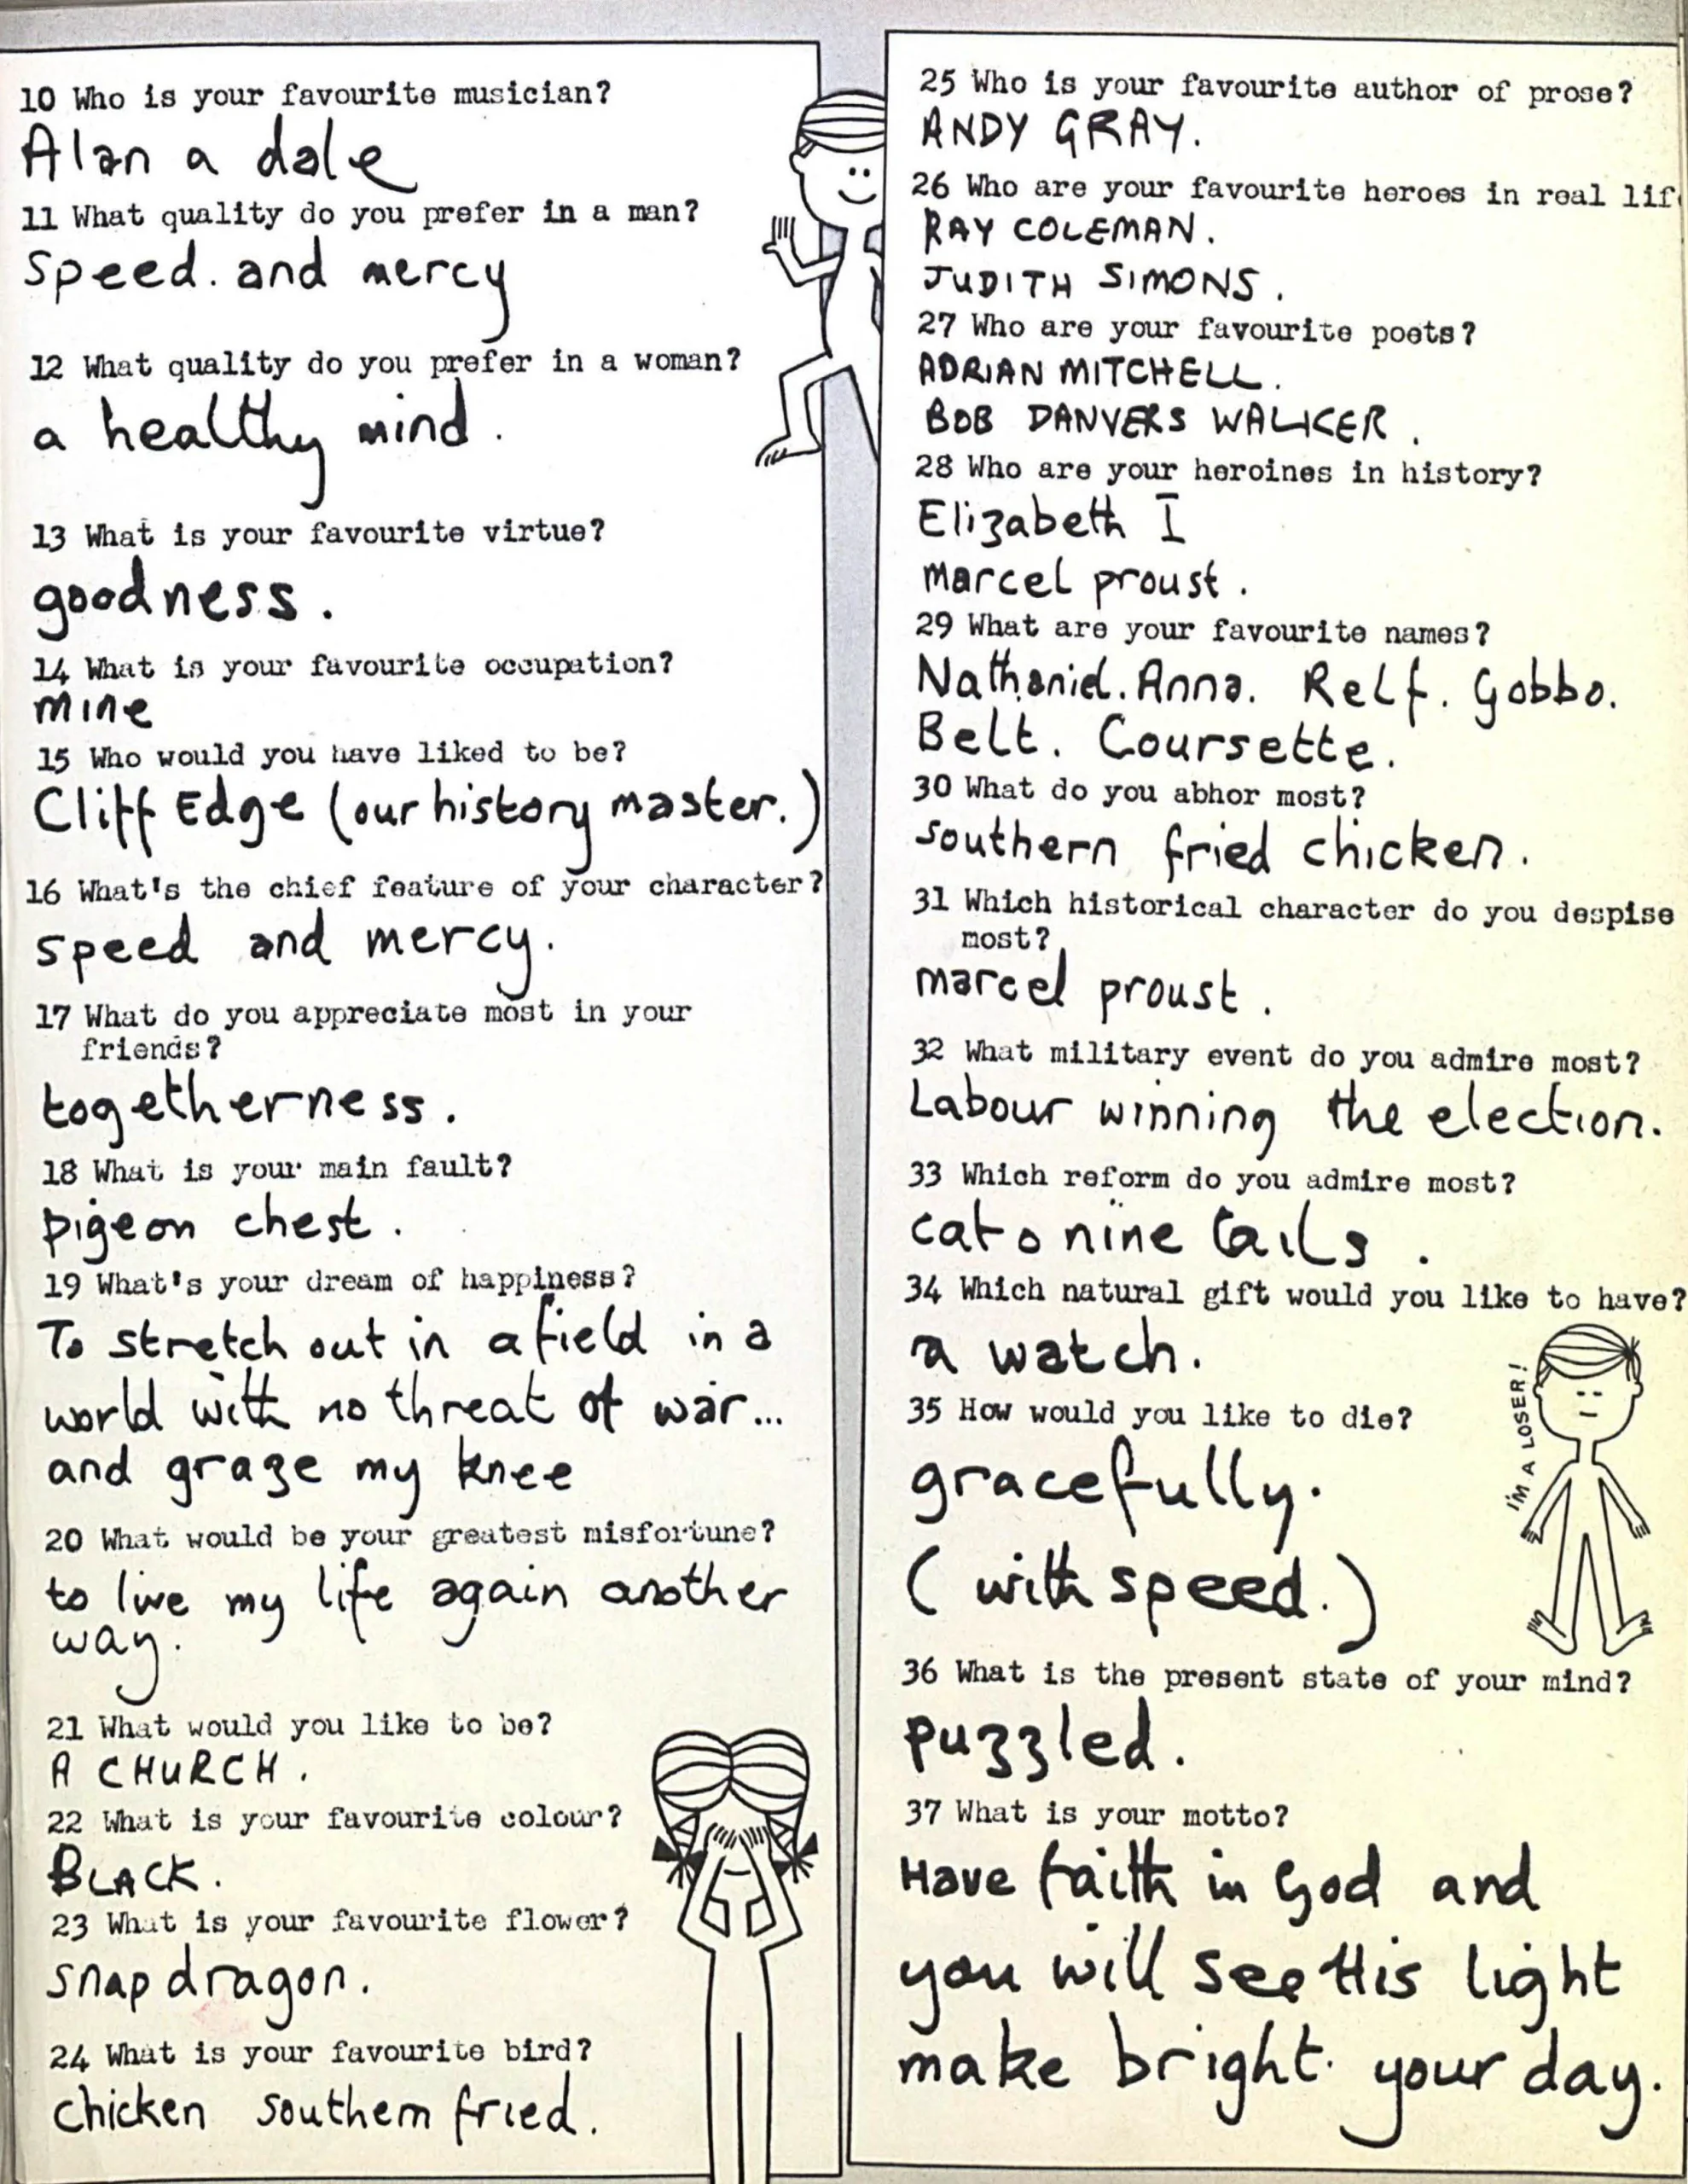 10 Who is your favourite musician?
Alan a dale
11 What quality do you prefer in a man?
speed. and mercy
12 What quality do you prefer in a woman?
a healthy mind.
13 What is your favourite virtue?
goodness.
14 What is your favourite occupation?
mine
15 Who would you have liked to be?
Cliff Edge (our history master.)
16 What's the chief feature of your character?
speed and mercy.
17 What do you appreciate most in your
friends?
togetherness.
18 What is your main fault?
pigeon chest.
19 What's your dream of happiness?
To stretch out in a field in a
world with no threat of war...
and graze my knee
20 What would be your greatest misfortune?
to live my life again another
way.
21 What would you like to be?
A CHURCH.
22 What is your favourite colour?
BLACK.
23 What is your favourite flower?
snap dragon.
24 What is your favourite bird?
chicken southern fried.
25 Who is your favourite author of prose?
ANDY GRAY.
26 Who are your favourite heroes in real lif
RAY COLEMAN.
JUDITH SIMONS.
27 Who are your favourite poets?
ADRIAN MITCHELL.
BOB DANVERS WALKER.
28 Who are your heroines in history?
Elizabeth I
Marcel proust.
29 What are your favourite names?
Nathaniel. Anna. Relf. Gobbo.
Belt. Coursette.
30 What do you abhor most?
southern fried chicken.
31 Which historical character do you despise
most?
marcel proust.
32 What military event do you admire most?
Labour winning the election.
33 Which reform do you admire most?
cat o nine tails.
34 Which natural gift would you like to have?
a watch.
35 How would you like to die?
gracefully.
(with speed.)
I'M A LOSER!
36 What is the present state of your mind?
puzzled.
37 What is your motto?
Have faith in God and
you will see His light
make bright your day.